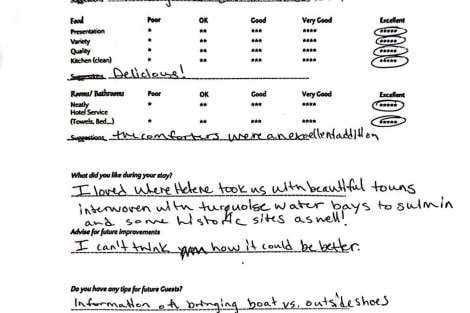 Food Poor OK Good Very Good Excellent
Presentation * ** *** **** *****
Variety * ** *** **** *****
Quality * ** *** **** *****
Kitchen (clean) * ** *** **** *****
Delicious!
Rooms/ Bathrooms Poor OK Good Very Good Excellent
Neatly * ** *** **** *****
Hotel Service
(Towels, Bed...) * ** *** **** *****
Suggestions the comforters were an excellent addition
What did you like during your stay?
I loved where Helene took us with beautiful towns
interwoven with turquoise water bays to swim in
and some historic sites as well!
Advise for future improvements
I can't think how it could be better.
Do you have any tips for future Guests?
Information on bringing boat vs. outside shoes